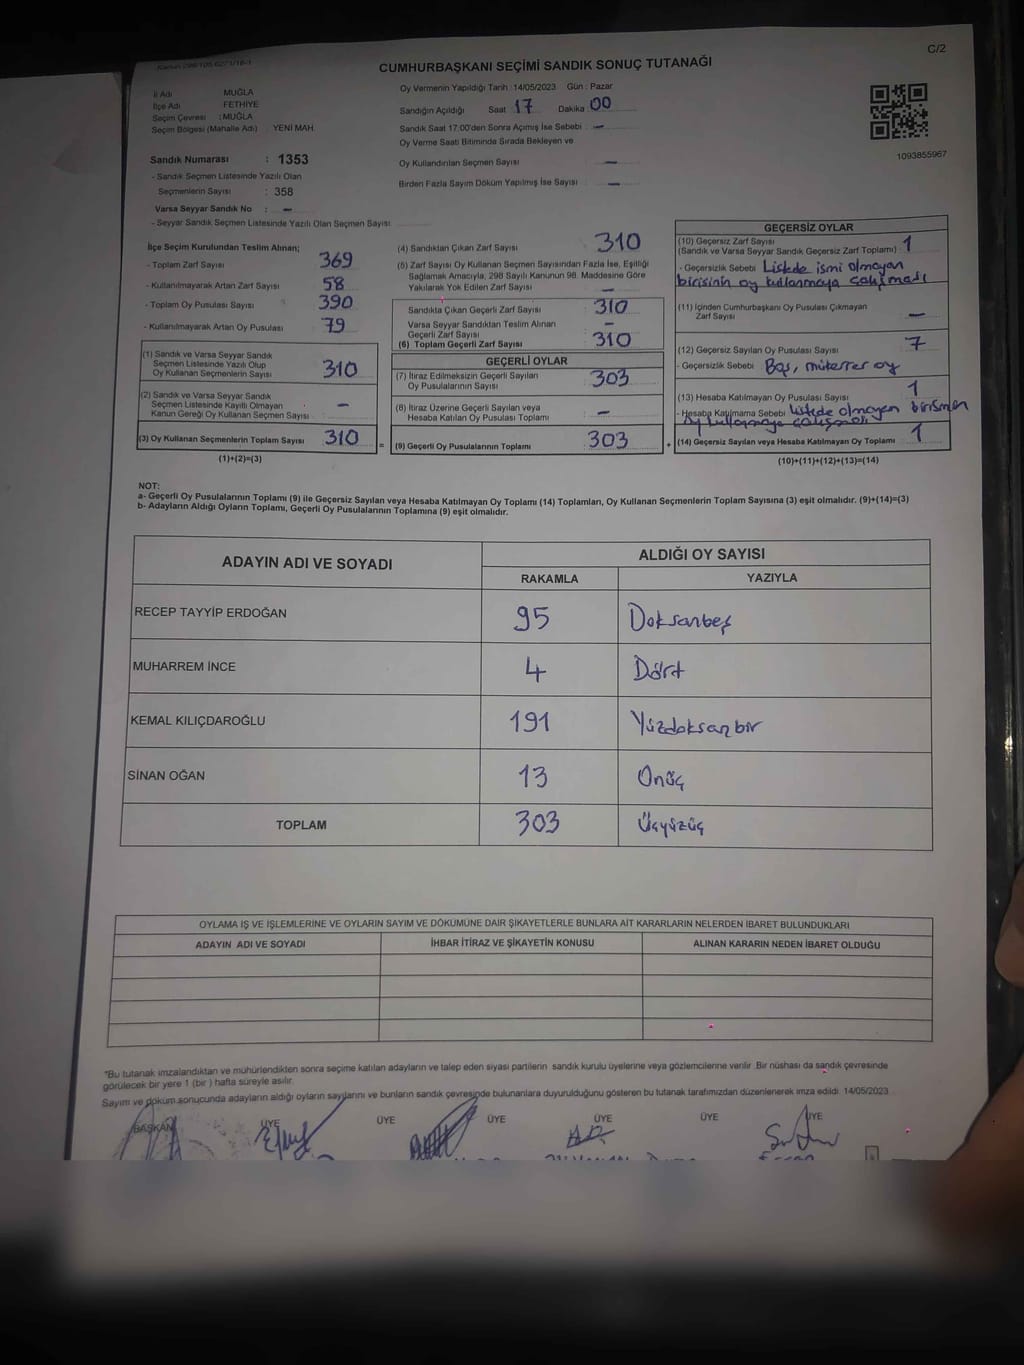 C/2
Kanun 298/105 6271/18-1
CUMHURBAŞKANI SEÇİMİ SANDIK SONUÇ TUTANAĞI
İl Adı MUĞLA
İlçe Adı FETHİYE
Seçim Çevresi : MUĞLA
Seçim Bölgesi (Mahalle Adı) : YENİ MAH.
Sandık Numarası : 1353
- Sandık Seçmen Listesinde Yazılı Olan
Seçmenlerin Sayısı : 358
Varsa Seyyar Sandık No : –
- Seyyar Sandık Seçmen Listesinde Yazılı Olan Seçmen Sayısı
Oy Vermenin Yapıldığı Tarih : 14/05/2023 Gün : Pazar
Sandığın Açıldığı Saat 17 Dakika 00
Sandık Saat 17:00'den Sonra Açımış İse Sebebi : –
Oy Verme Saati Bitiminde Sırada Bekleyen ve
Oy Kullandırılan Seçmen Sayısı –
Birden Fazla Sayım Döküm Yapılmış İse Sayısı –
1093855967
İlçe Seçim Kurulundan Teslim Alınan;
- Toplam Zarf Sayısı 369
- Kullanılmayarak Artan Zarf Sayısı 58
- Toplam Oy Pusulası Sayısı 390
- Kullanılmayarak Artan Oy Pusulası 79
(1) Sandık ve Varsa Seyyar Sandık
Seçmen Listesinde Yazılı Olup
Oy Kullanan Seçmenlerin Sayısı 310
(2) Sandık ve Varsa Seyyar Sandık
Seçmen Listesinde Kayıtlı Olmayan
Kanun Gereği Oy Kullanan Seçmen Sayısı –
(3) Oy Kullanan Seçmenlerin Toplam Sayısı 310 =
(1)+(2)=(3)
(4) Sandıktan Çıkan Zarf Sayısı 310
(5) Zarf Sayısı Oy Kullanan Seçmen Sayısından Fazla İse, Eşitliği
Sağlamak Amacıyla, 298 Sayılı Kanunun 98. Maddesine Göre
Yakılarak Yok Edilen Zarf Sayısı –
Sandıkta Çıkan Geçerli Zarf Sayısı 310
Varsa Seyyar Sandıktan Teslim Alınan
Geçerli Zarf Sayısı –
(6) Toplam Geçerli Zarf Sayısı 310
GEÇERLİ OYLAR
(7) İtiraz Edilmeksizin Geçerli Sayılan
Oy Pusulalarının Sayısı 303
(8) İtiraz Üzerine Geçerli Sayılan veya
Hesaba Katılan Oy Pusulası Toplamı –
(9) Geçerli Oy Pusulalarının Toplamı : 303 +
GEÇERSİZ OYLAR
(10) Geçersiz Zarf Sayısı
(Sandık ve Varsa Seyyar Sandık Geçersiz Zarf Toplamı) 1
- Geçersizlik Sebebi Listede ismi olmayan
birisinin oy kullanmaya çalışması
(11) İçinden Cumhurbaşkanı Oy Pusulası Çıkmayan
Zarf Sayısı –
(12) Geçersiz Sayılan Oy Pusulası Sayısı 7
- Geçersizlik Sebebi Boş, mükerrer oy
(13) Hesaba Katılmayan Oy Pusulası Sayısı 1
- Hesaba Katılmama Sebebi Listede olmayan birisinin
oy kullanmaya çalışması
(14) Geçersiz Sayılan veya Hesaba Katılmayan Oy Toplamı 1
(10)+(11)+(12)+(13)=(14)
NOT:
a- Geçerli Oy Pusulalarının Toplamı (9) ile Geçersiz Sayılan veya Hesaba Katılmayan Oy Toplamı (14) Toplamları, Oy Kullanan Seçmenlerin Toplam Sayısına (3) eşit olmalıdır. (9)+(14)=(3)
b- Adayların Aldığı Oyların Toplamı, Geçerli Oy Pusulalarının Toplamına (9) eşit olmalıdır.
ADAYIN ADI VE SOYADI ALDIĞI OY SAYISI
RAKAMLA YAZIYLA
RECEP TAYYİP ERDOĞAN 95 Doksanbeş
MUHARREM İNCE 4 Dört
KEMAL KILIÇDAROĞLU 191 Yüzdoksanbir
SİNAN OĞAN 13 Onüç
TOPLAM 303 Üçyüzüç
OYLAMA İŞ VE İŞLEMLERİNE VE OYLARIN SAYIM VE DÖKÜMÜNE DAİR ŞİKAYETLERLE BUNLARA AİT KARARLARIN NELERDEN İBARET BULUNDUKLARI
ADAYIN ADI VE SOYADI İHBAR İTİRAZ VE ŞİKAYETİN KONUSU ALINAN KARARIN NEDEN İBARET OLDUĞU
"Bu tutanak imzalandıktan ve mühürlendikten sonra seçime katılan adayların ve talep eden siyasi partilerin sandık kurulu üyelerine veya gözlemcilerine verilir. Bir nüshası da sandık çevresinde
görülecek bir yere 1 (bir ) hafta süreyle asılır.
Sayım ve döküm sonucunda adayların aldığı oyların sayılarını ve bunların sandık çevresinde bulunanlara duyurulduğunu gösteren bu tutanak tarafımızdan düzenlenerek imza edildi. 14/05/2023
BAŞKAN ÜYE ÜYE ÜYE ÜYE ÜYE ÜYE